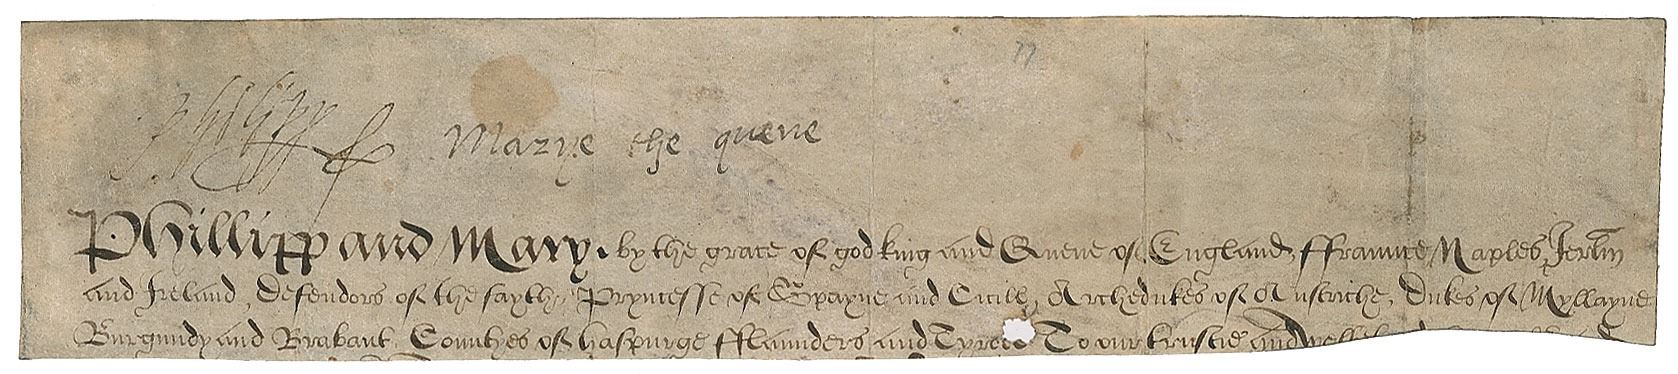 77
Philipp Marye the quene
Phillipp and Mary. by the grace of god king and Quene of England, ffraunce, Naples, Jerlm
and Ireland, Defendors of the fayth, Pryncesse of Spayne and Cicill, Archedukes of Austriche, Dukes of Myllayne
Burgundy and Brabant, Counthes of haspurge fflaunders and Tyroll To our trustie and